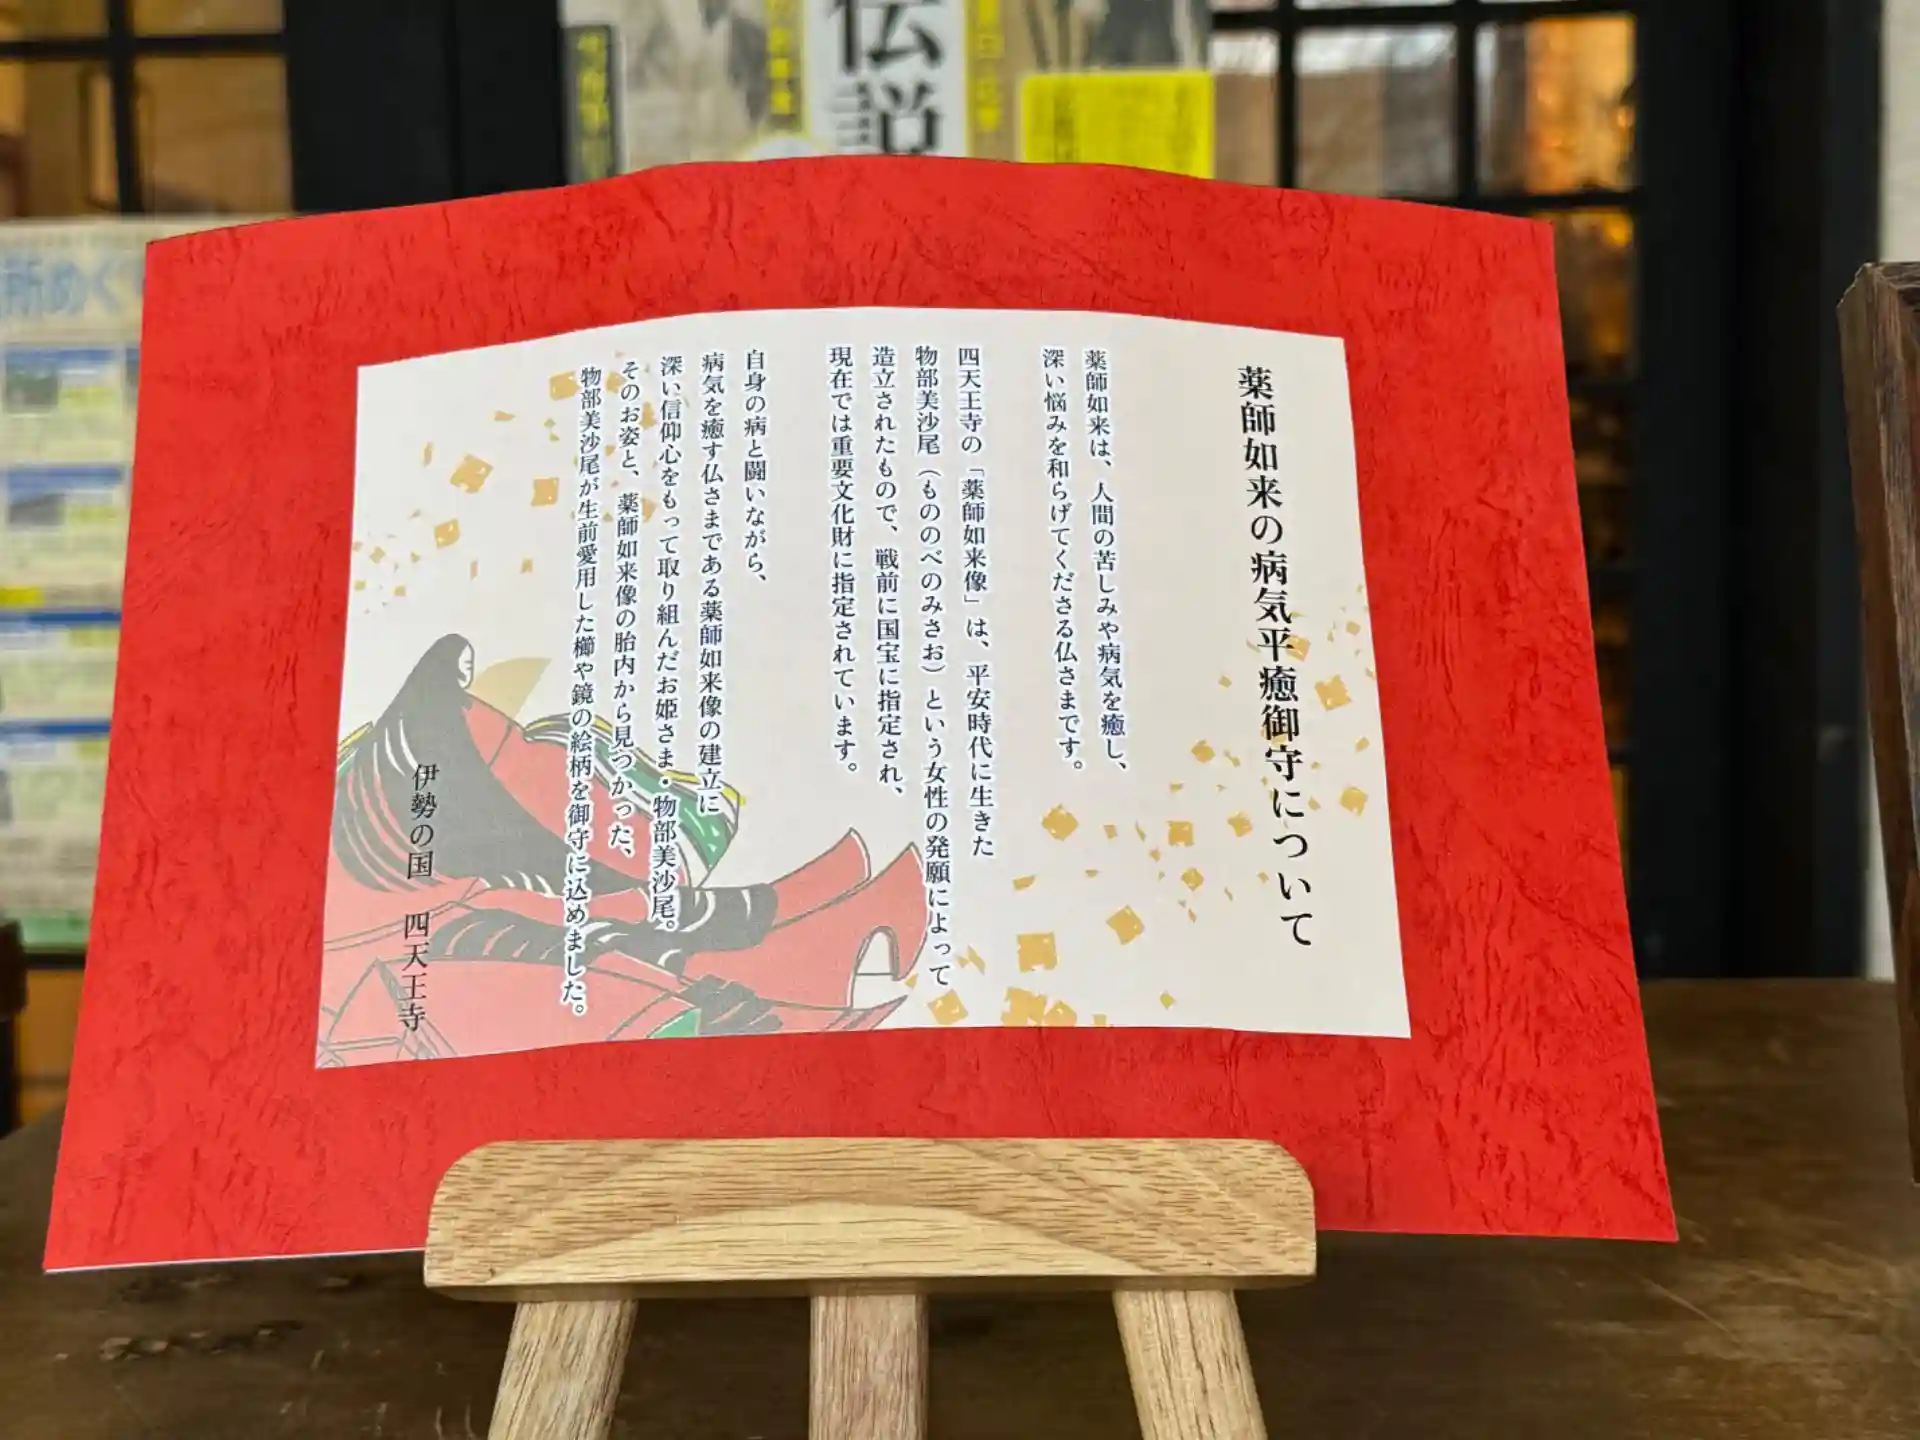 伝説
薬師如来の病気平癒御守について
薬師如来は、人間の苦しみや病気を癒し、
深い悩みを和らげてくださる仏さまです。
四天王寺の「薬師如来像」は、平安時代に生きた
物部美沙尾（もののべのみさお）という女性の発願によって
造立されたもので、戦前に国宝に指定され、
現在では重要文化財に指定されています。
自身の病と闘いながら、
病気を癒す仏さまである薬師如来像の建立に
深い信仰心をもって取り組んだお姫さま・物部美沙尾。
そのお姿と、薬師如来像の胎内から見つかった、
物部美沙尾が生前愛用した櫛や鏡の絵柄を御守に込めました。
伊勢の国　四天王寺